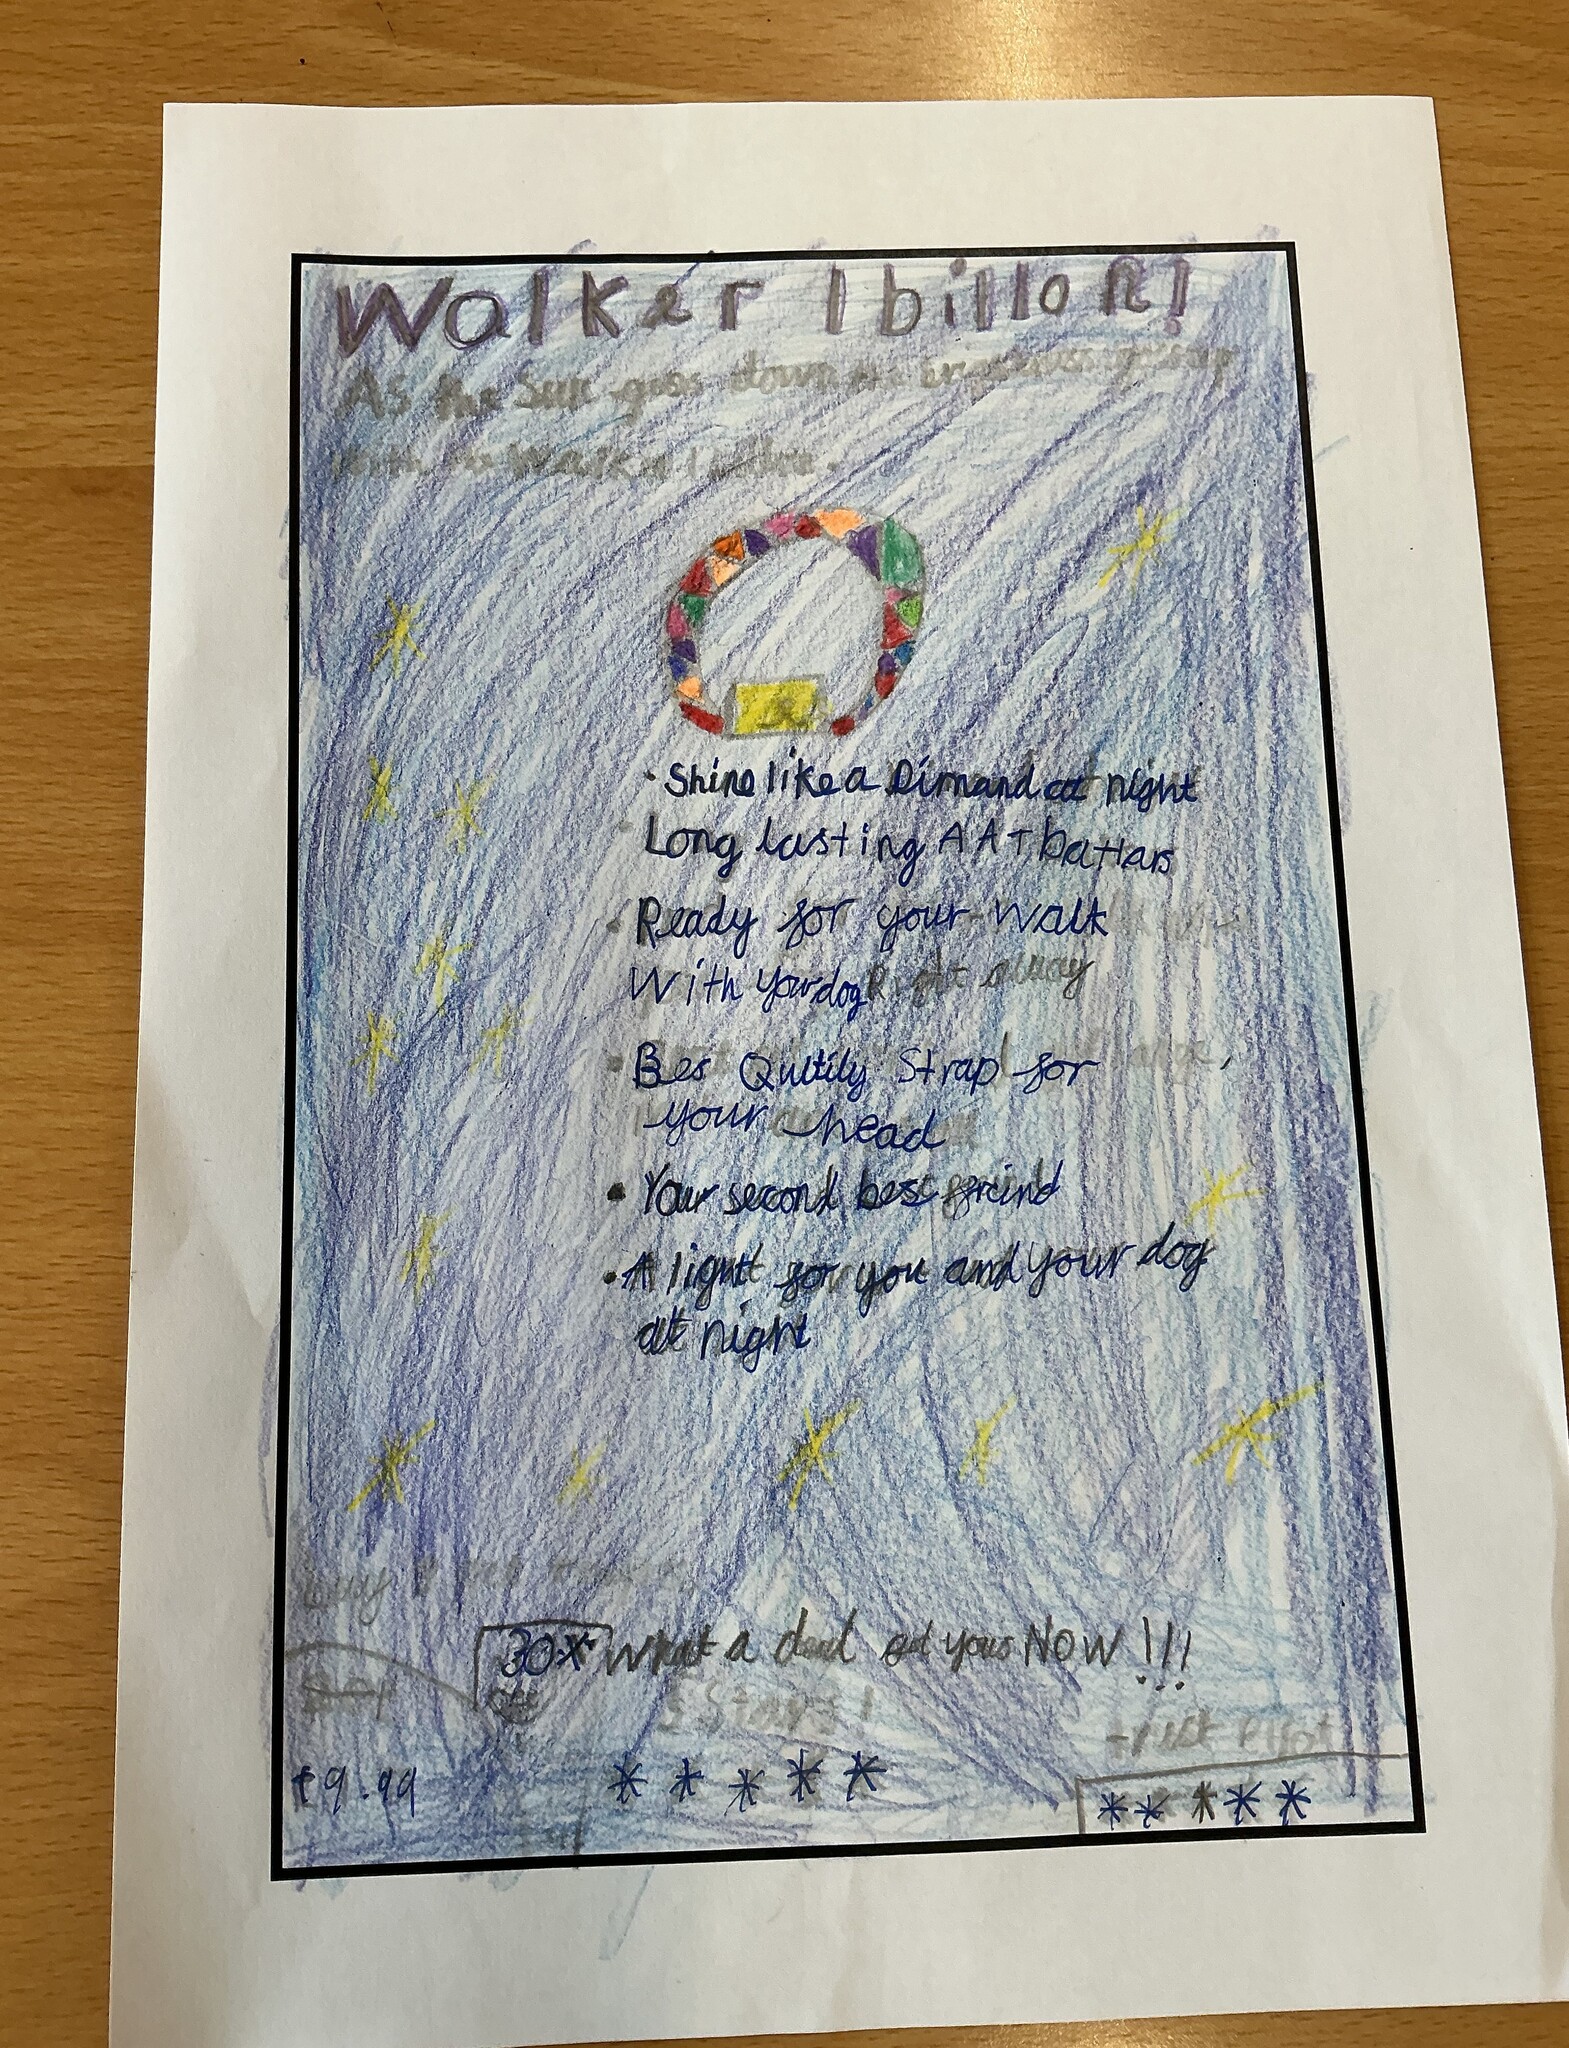 Walker 1billon!
As the Sun goes down
Walk
• Shine like a Dimand at night
Long lasting AAT battars
• Ready for your walk
With your dog Right away
• Bes Qultily Strap for
your head
• Your second best freind
• A light for you and your dog
at night
Buy
30X What a deal get yours NOW!!!
5 Stars!
trust Pilot
£9.99 * * * * * * * * * *